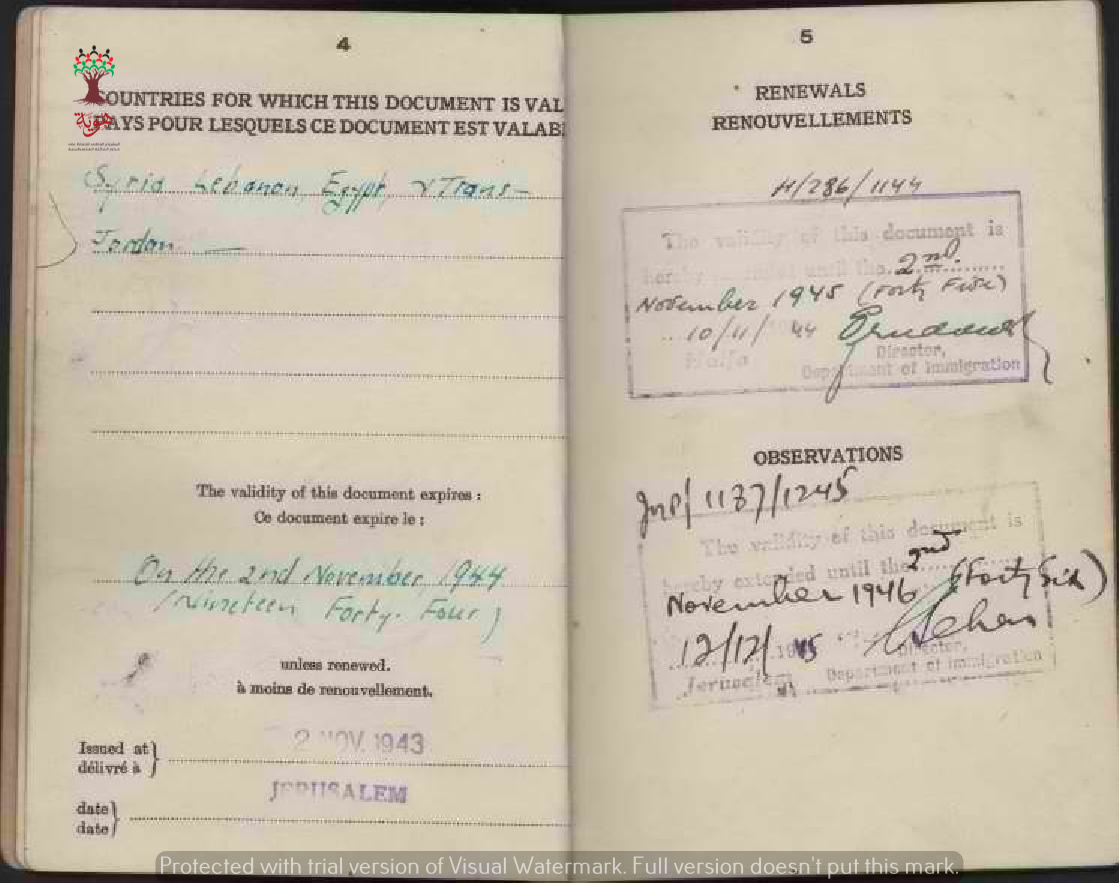 4
COUNTRIES FOR WHICH THIS DOCUMENT IS VAL
PAYS POUR LESQUELS CE DOCUMENT EST VALAB
Syria Lebanon, Egypt, & Trans-
Jordan
The validity of this document expires :
Ce document expire le :
On the 2nd November, 1944
(Nineteen Forty-Four)
unless renewed.
à moins de renouvellement.
2 NOV. 1943
Issued at
délivré à
JERUSALEM
date
date
5
RENEWALS
RENOUVELLEMENTS
H/286/1144
The validity of this document is
hereby until the 2nd.
November 1945 (Forty Five)
10/11/ 44
Haifa
Director,
Department of Immigration
OBSERVATIONS
1137/1245
The validity of this document is
hereby extended until the 2nd
November 1946 (Forty Six)
12/12/ 45
Director,
Jerusalem
Department of Immigration
هوية
Protected with trial version of Visual Watermark. Full version doesn't put this mark.